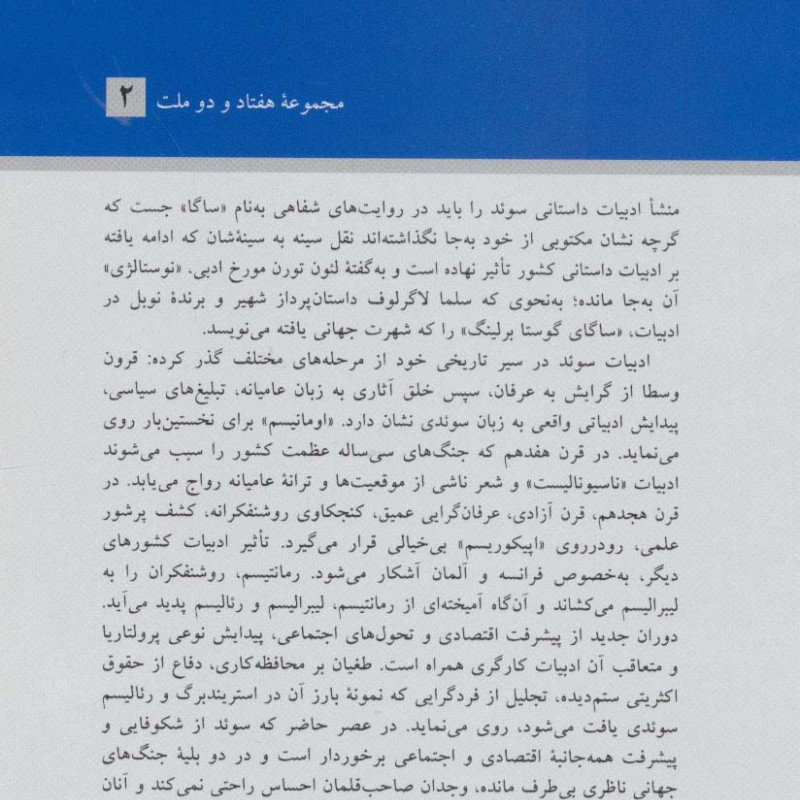 مجموعهٔ هفتاد و دو ملت ۲
منشأ ادبیات داستانی سوئد را باید در روایت‌های شفاهی به‌نام «ساگا» جست که
گرچه نشان مکتوبی از خود به‌جا نگذاشته‌اند نقل سینه به سینه‌شان که ادامه یافته
بر ادبیات داستانی کشور تأثیر نهاده است و به‌گفتهٔ لئون تورن مورخ ادبی، «نوستالژی»
آن به‌جا مانده؛ به‌نحوی که سلما لاگرلوف داستان‌پرداز شهیر و برندهٔ نوبل در
ادبیات، «ساگای گوستا برلینگ» را که شهرت جهانی یافته می‌نویسد.
ادبیات سوئد در سیر تاریخی خود از مرحله‌های مختلف گذر کرده: قرون
وسطا از گرایش به عرفان، سپس خلق آثاری به زبان عامیانه، تبلیغ‌های سیاسی،
پیدایش ادبیاتی واقعی به زبان سوئدی نشان دارد. «اومانیسم» برای نخستین‌بار روی
می‌نماید. در قرن هفدهم که جنگ‌های سی‌ساله عظمت کشور را سبب می‌شوند
ادبیات «ناسیونالیست» و شعر ناشی از موقعیت‌ها و ترانهٔ عامیانه رواج می‌یابد. در
قرن هجدهم، قرن آزادی، عرفان‌گرایی عمیق، کنجکاوی روشنفکرانه، کشف پرشور
علمی، رودرروی «اپیکوریسم» بی‌خیالی قرار می‌گیرد. تأثیر ادبیات کشورهای
دیگر، به‌خصوص فرانسه و آلمان آشکار می‌شود. رمانتیسم، روشنفکران را به
لیبرالیسم می‌کشاند و آن‌گاه آمیخته‌ای از رمانتیسم، لیبرالیسم و رئالیسم پدید می‌آید.
دوران جدید از پیشرفت اقتصادی و تحول‌های اجتماعی، پیدایش نوعی پرولتاریا
و متعاقب آن ادبیات کارگری همراه است. طغیان بر محافظه‌کاری، دفاع از حقوق
اکثریتی ستم‌دیده، تجلیل از فردگرایی که نمونهٔ بارز آن در استریندبرگ و رئالیسم
سوئدی یافت می‌شود، روی می‌نماید. در عصر حاضر که سوئد از شکوفایی و
پیشرفت همه‌جانبهٔ اقتصادی و اجتماعی برخوردار است و در دو بلیهٔ جنگ‌های
جهانی ناظری بی‌طرف مانده، وجدان صاحب‌قلمان احساس راحتی نمی‌کند و آنان